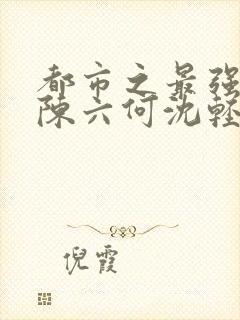 都市之最强
陈六何沈轻
倪霞